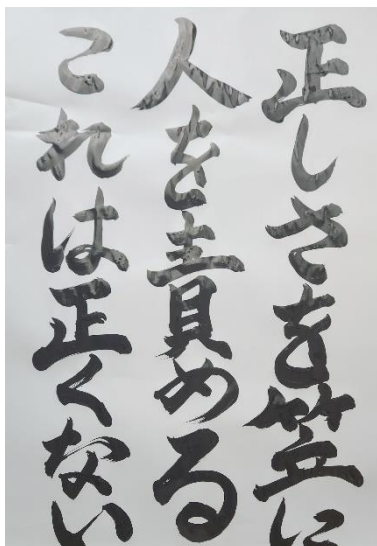 正しさを笠に
人を責める
これは正くない